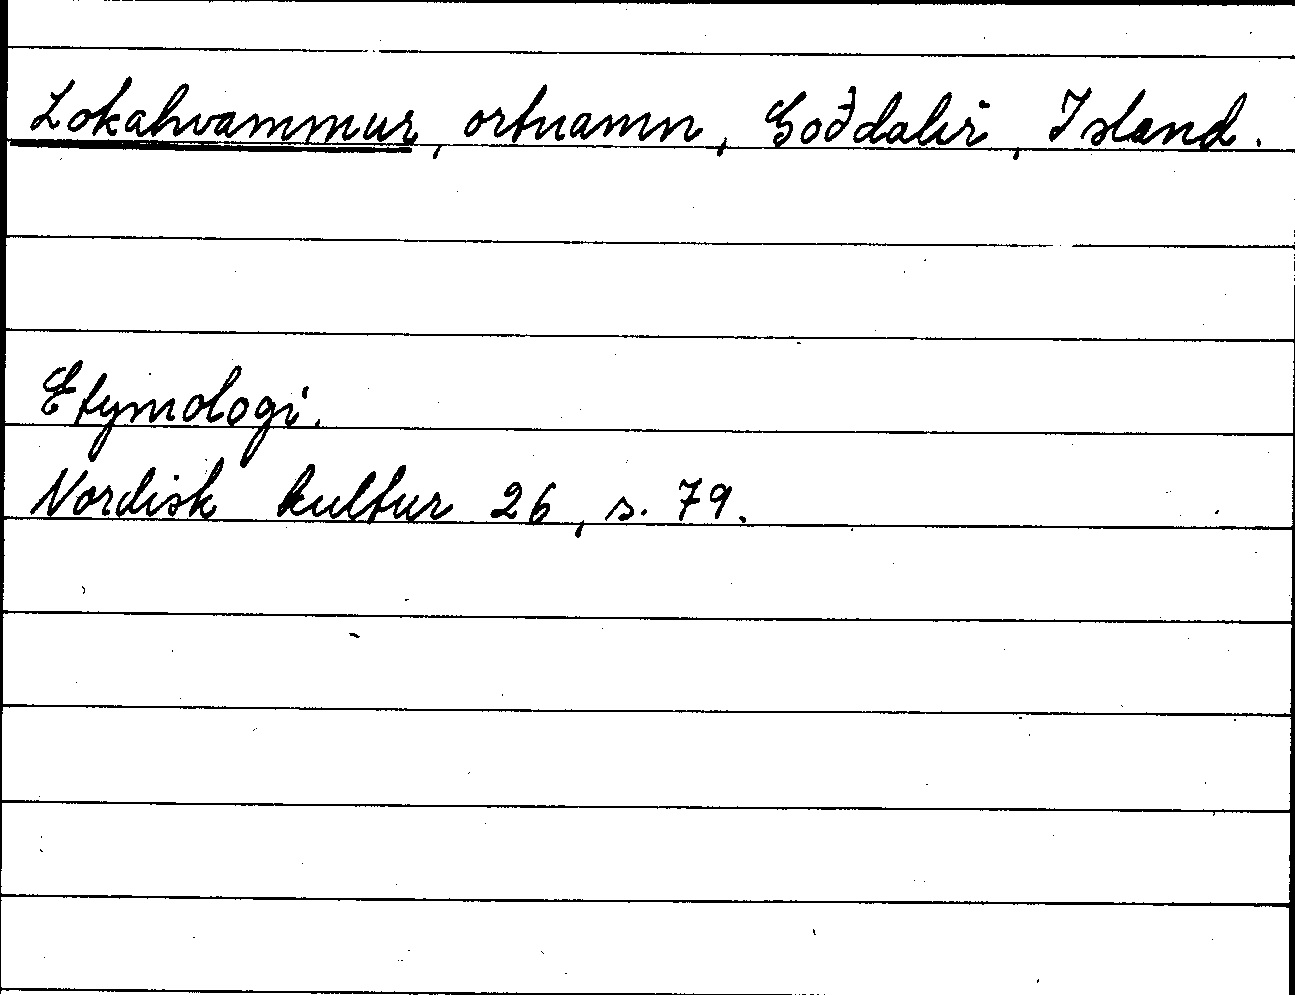 Lokahvammur, ortnamn, Goðdalir, Island.
Etymologi.
Nordisk kultur 26, s. 79.